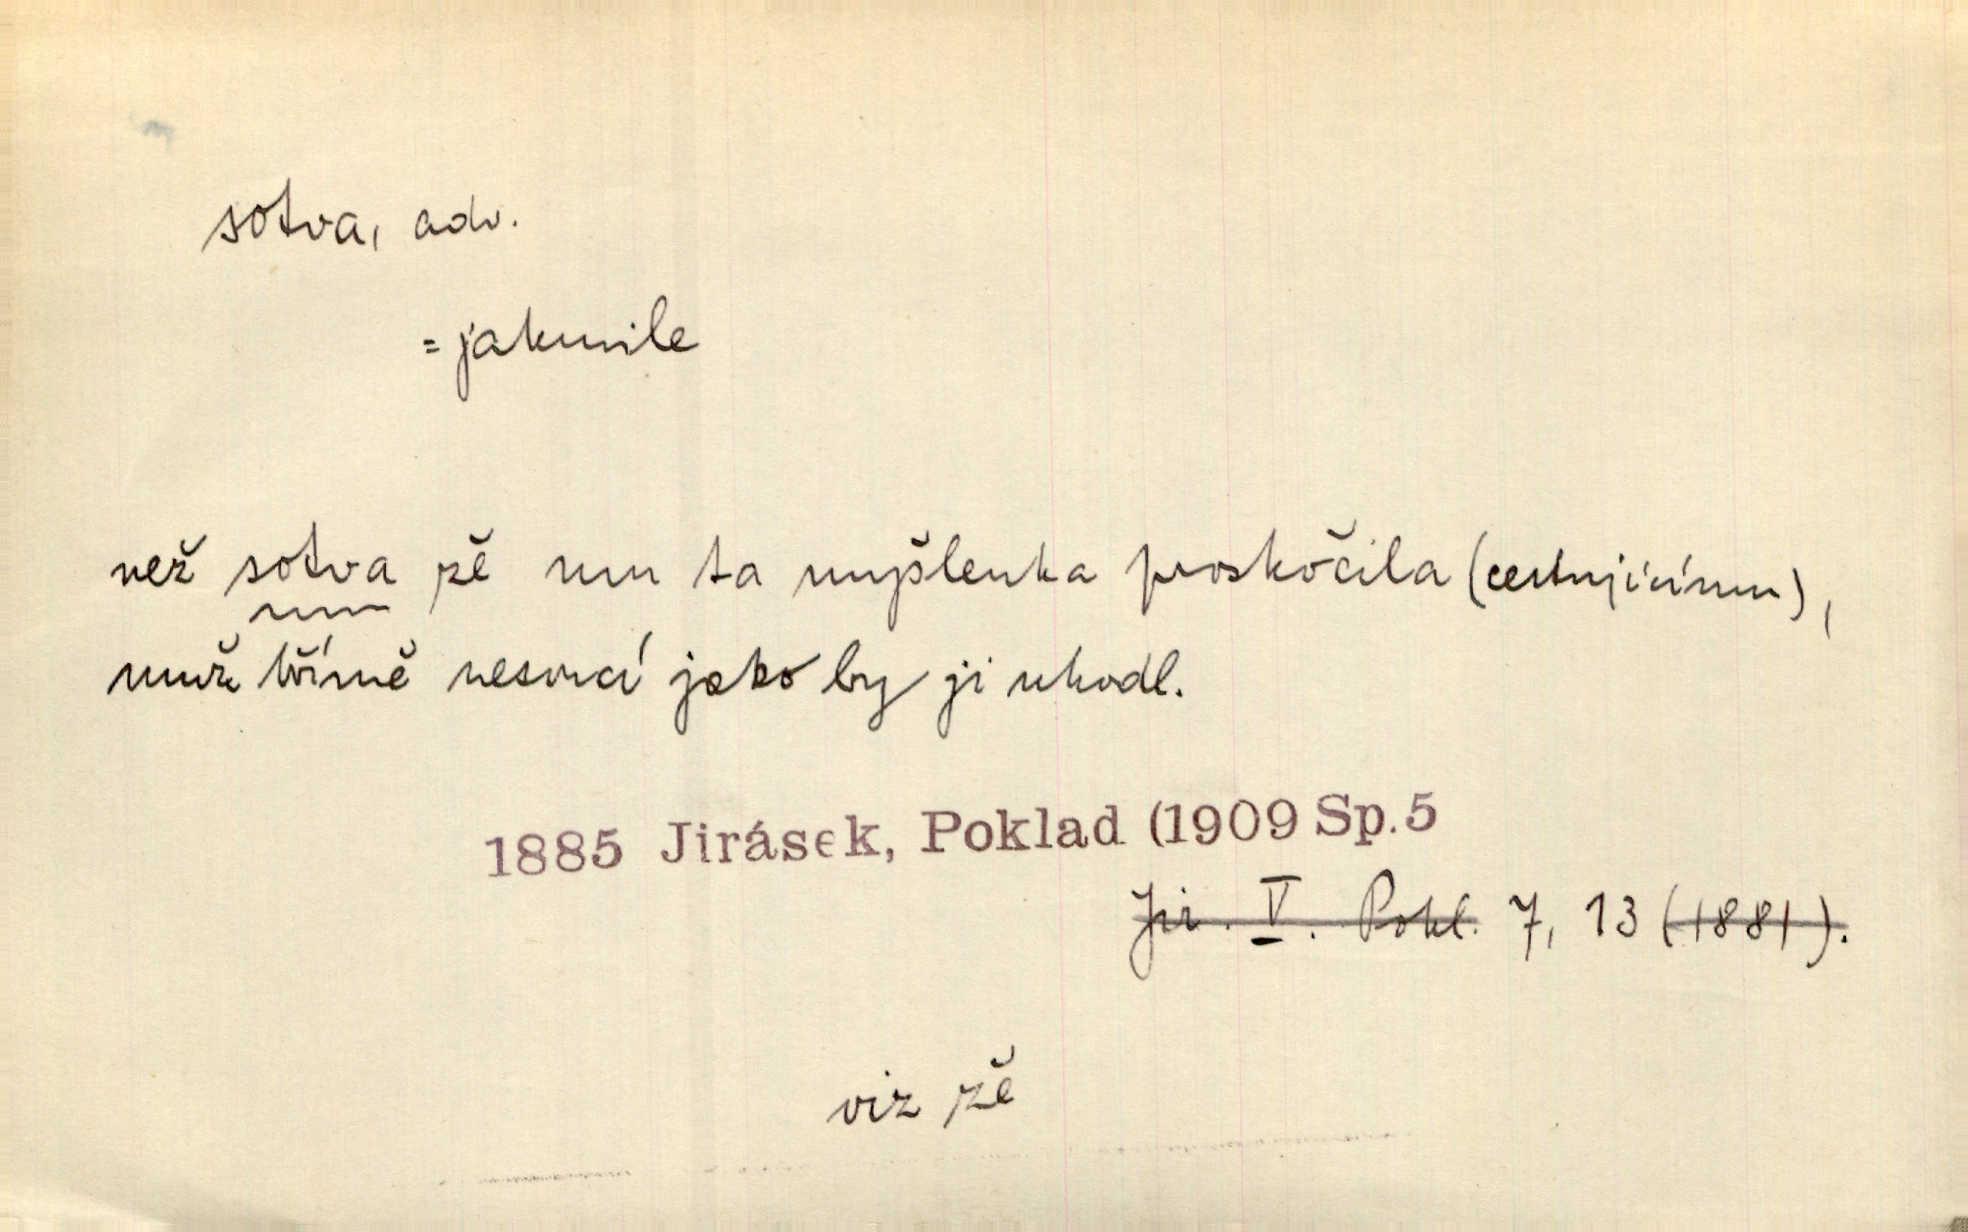 sotva, adv.
= jakmile
než sotva že mu ta myšlenka proskočila (cestujícímu),
muž břímě nesoucí jako by ji uhodl.
1885 Jirásek, Poklad (1909 Sp. 5
Jir. V. Pokl. 7, 13 (1881).
viz že